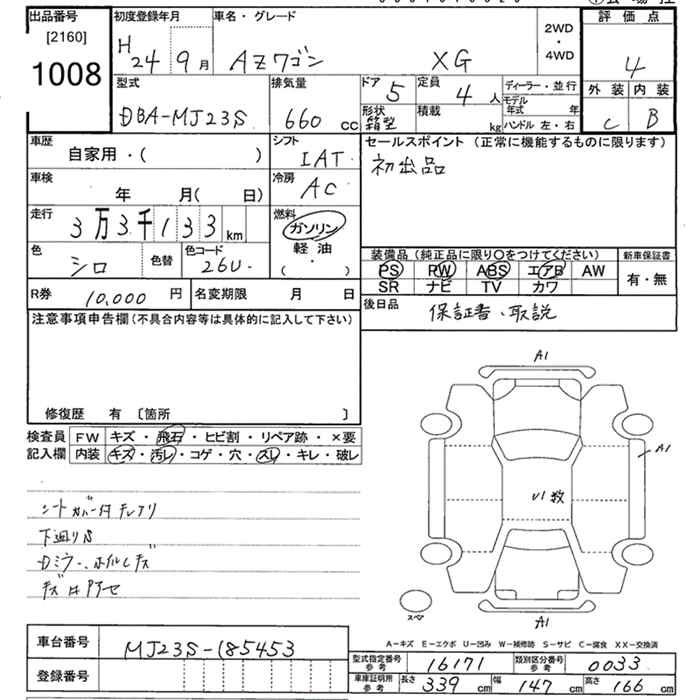 出品番号 初度登録年月 車名・グレード 2WD・4WD 評価点
[2160] 1008 H24 9月 AZワゴン XG 4
型式 排気量 ドア 5 定員 4人 ディーラー・並行 外装 内装
モデル年式 年
DBA-MJ23S 660cc 形状 箱型 積載 kg ハンドル 左・右 C B
車歴 シフト セールスポイント (正常に機能するものに限ります)
自家用・( ) IAT 初出品
車検 冷房
年 月( 日) AC
走行 燃料
3万3千133km ガソリン
軽油
色 色替 色コード 装備品 (純正品に限り○をつけてください) 新車保証書
シロ 26U ・( ) PS PW ABS エアB AW 有・無
SR ナビ TV カワ
R券 10,000円 名変期限 月 日 後日品 保証書・取説
注意事項申告欄(不具合内容等は具体的に記入して下さい)
修復歴 有 〔箇所 〕
A1
検査員 FW キズ・飛石・ヒビ割・リペア跡・×要
記入欄 内装 キズ・汚レ・コゲ・穴・スレ・キレ・破レ
A1
U1数
シートカバー付
下廻りS
Dミラー、ホイルキズ
スペア
A1
A-キズ E-エクボ U-凹み W-補修跡 S-サビ C-腐食 XX-交換済
車台番号 MJ23S-185453
型式指定番号 参考 16171 類別区分番号 参考 0033
登録番号
車庫証明用 参考 長さ 339cm 幅 147cm 高さ 166cm